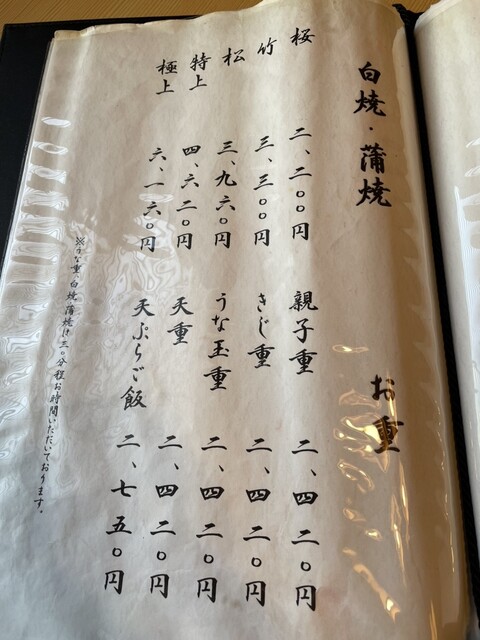 白焼・蒲焼
桜 二、二〇〇円
竹 三、三〇〇円
松 三、九六〇円
特上 四、六二〇円
極上 六、一六〇円
お重
親子重 二、四二〇円
きじ重 二、四二〇円
うな玉重 二、四二〇円
天重 二、四二〇円
天ぷらご飯 二、七五〇円
※うな重、白焼、蒲焼は三〇分程お時間いただいております。